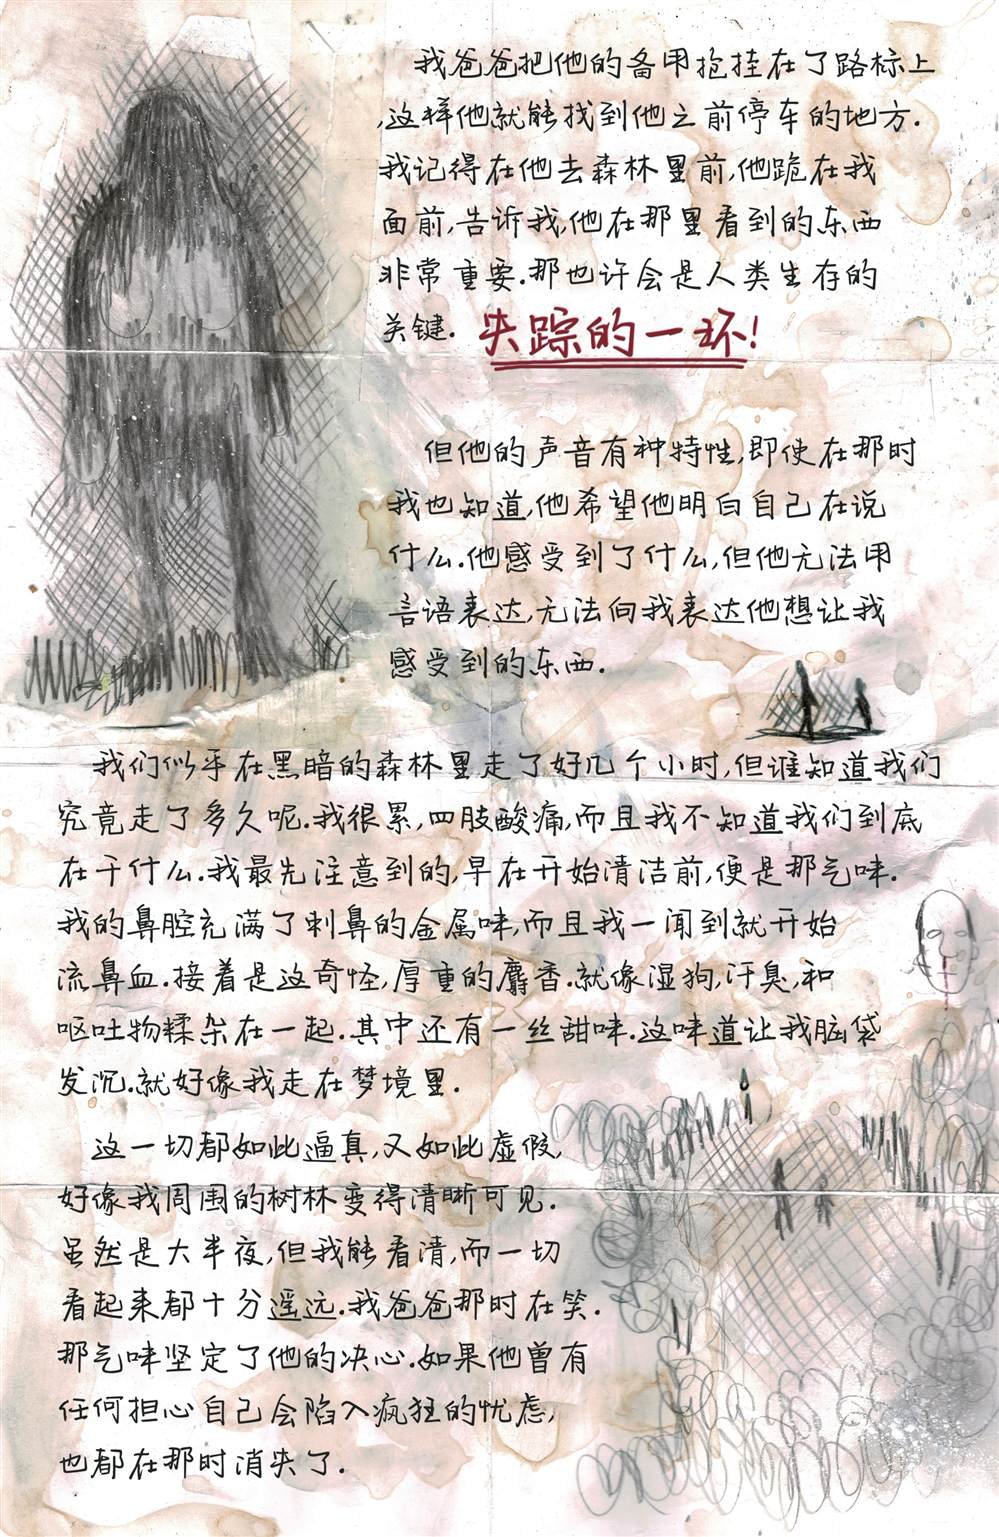 我爸爸把他的备用袍挂在了路标上
,这样他就能找到他之前停车的地方.
我记得在他去森林里前,他跪在我
面前,告诉我,他在那里看到的东西
非常重要.那也许会是人类生存的
关键.失踪的一环!
但他的声音有种特性,即使在那时
我也知道,他希望他明白自己在说
什么.他感受到了什么,但他无法用
言语表达,无法向我表达他想让我
感受到的东西.
我们似乎在黑暗的森林里走了好几个小时,但谁知道我们
究竟走了多久呢.我很累,四肢酸痛,而且我不知道我们到底
在干什么.我最先注意到的,早在开始清洁前,便是那气味.
我的鼻腔充满了刺鼻的金属味,而且我一闻到就开始
流鼻血.接着是这奇怪,厚重的麝香.就像湿狗,汗臭,和
呕吐物糅杂在一起.其中还有一丝甜味.这味道让我脑袋
发沉.就好像我走在梦境里.
这一切都如此逼真,又如此虚假,
好像我周围的树林变得清晰可见.
虽然是大半夜,但我能看清,而一切
看起来都十分遥远.我爸爸那时在笑.
那气味坚定了他的决心.如果他曾有
任何担心自己会陷入疯狂的忧虑,
也都在那时消失了.